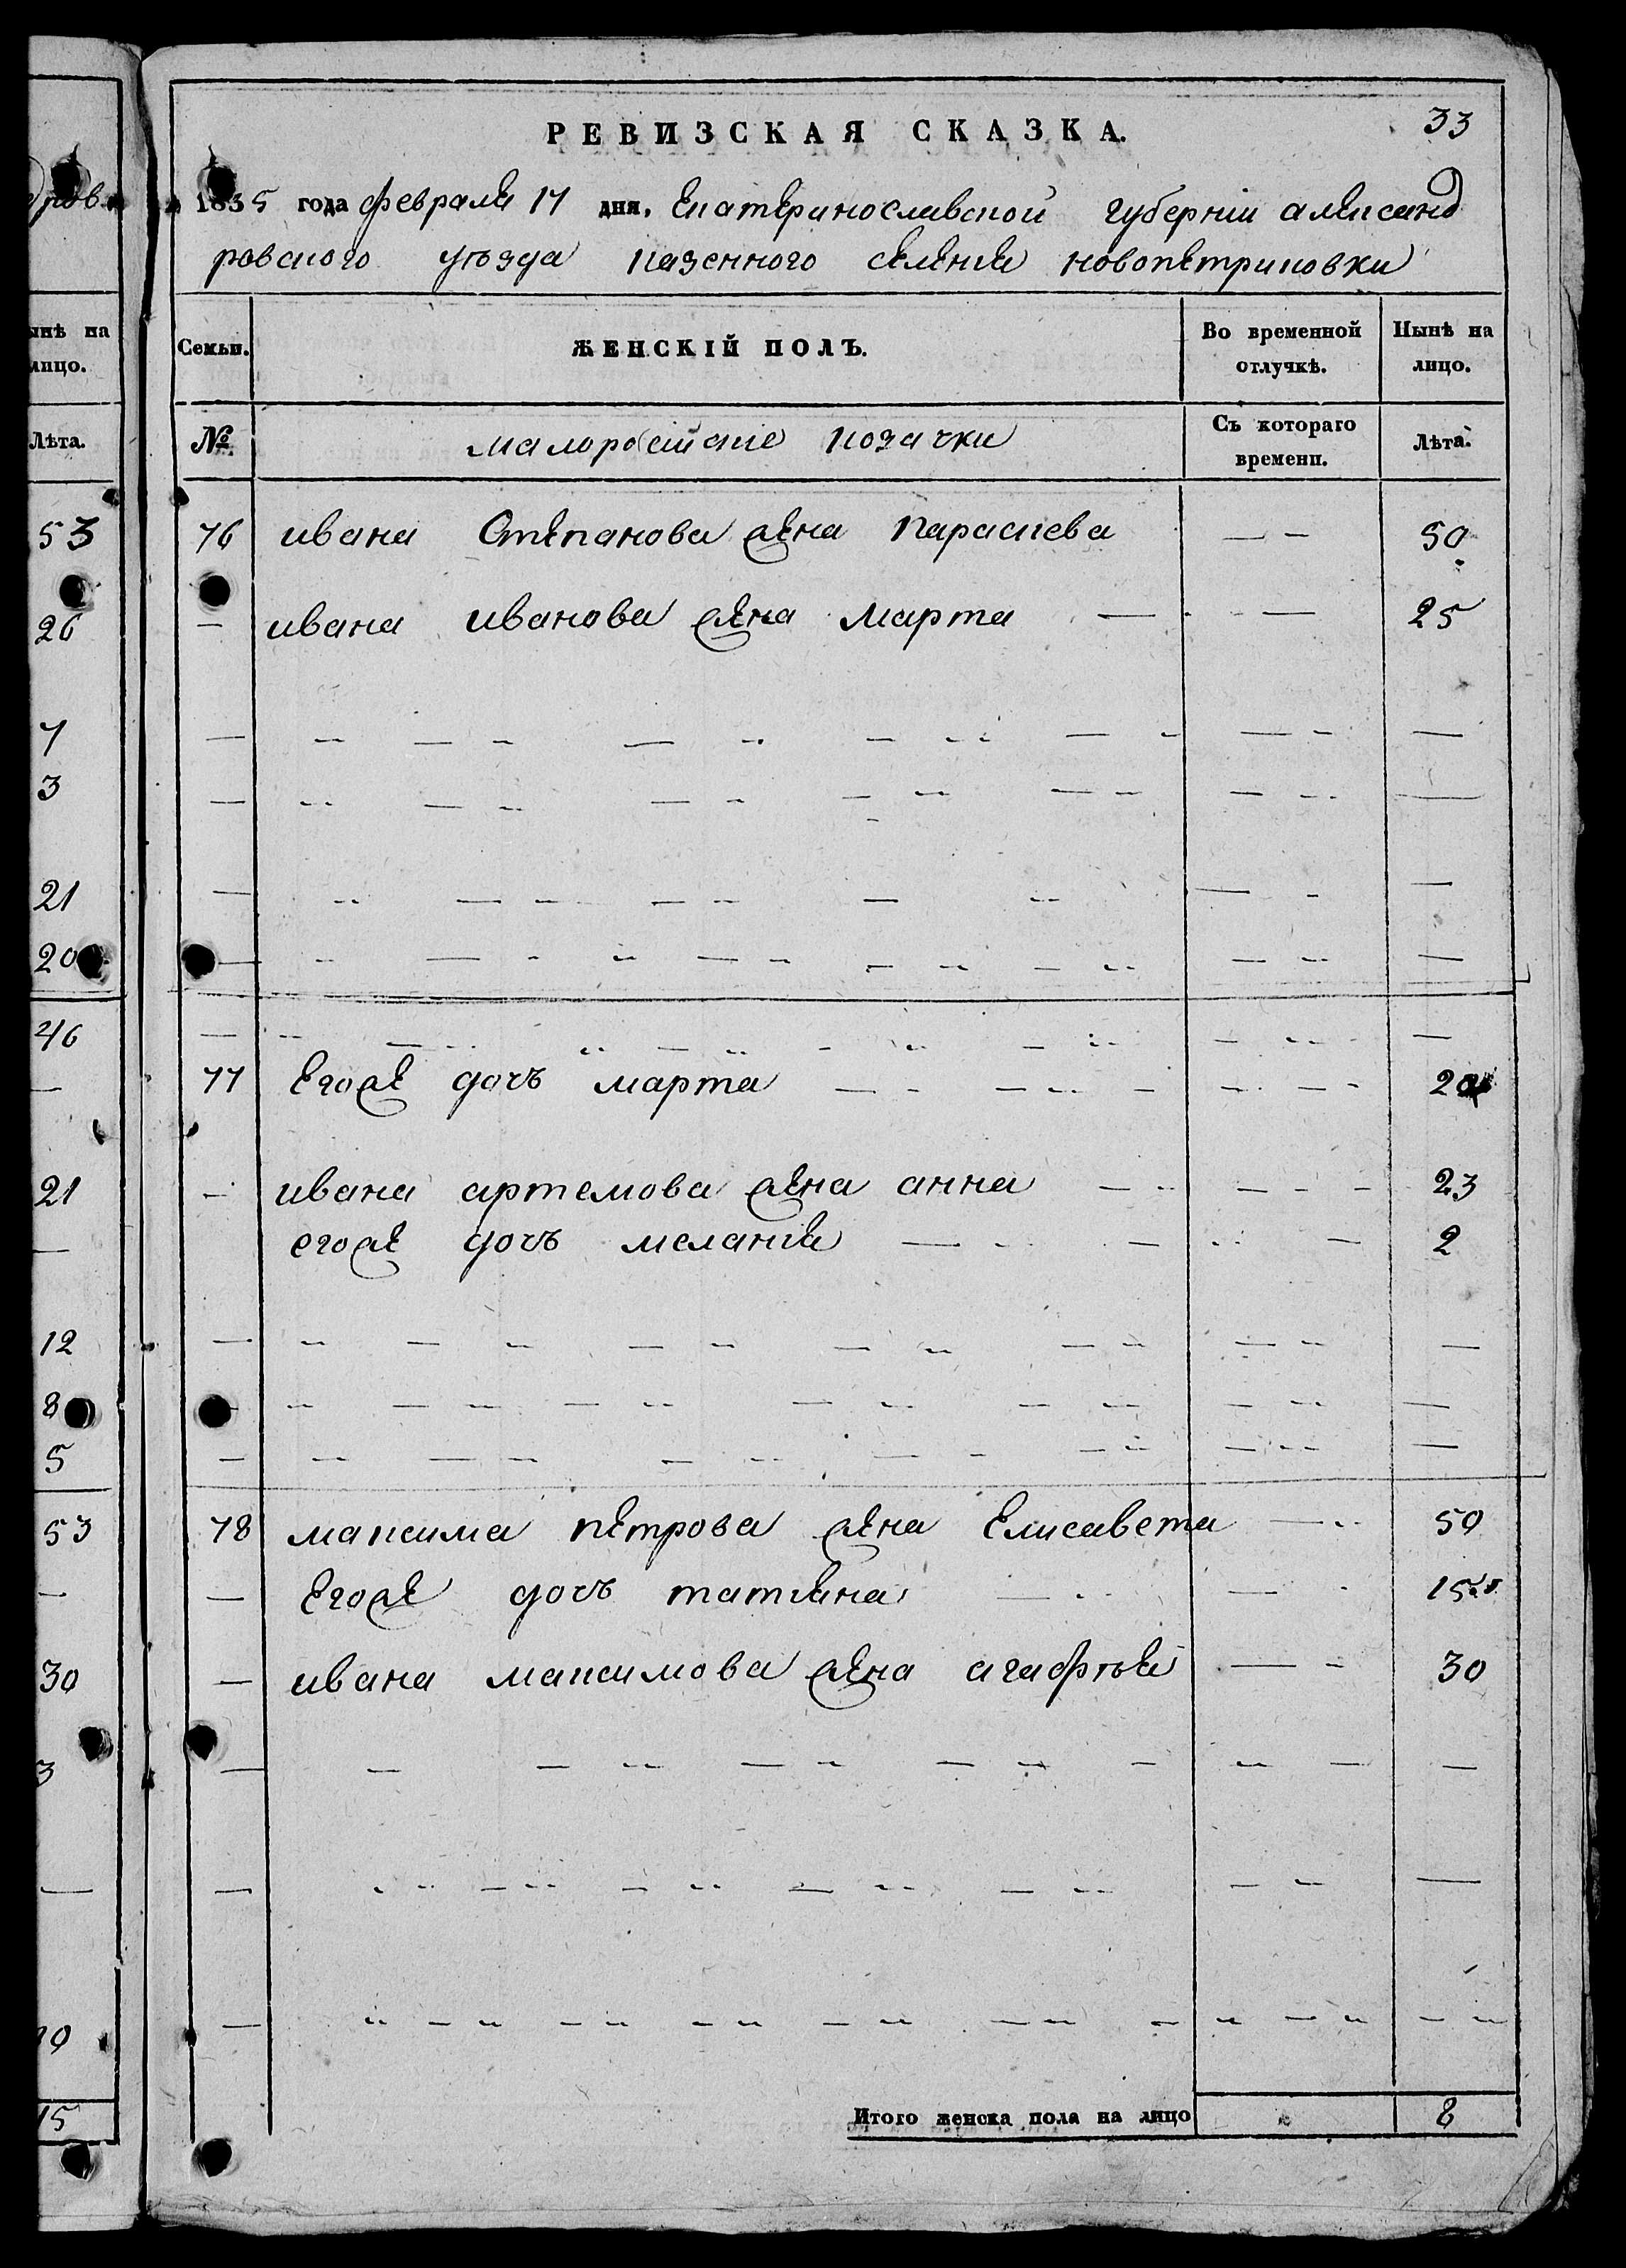 РЕВИЗСКАЯ СКАЗКА.
33
1835 года февраля 17 дня, Екатеринославской губерніи александ
ровского уѣзда казенного селенія новопетриковки
Семьи.
ЖЕНСКІЙ ПОЛЪ.
Во временной отлучкѣ.
Нынѣ на лицо.
№
малоросійскіе козачки
Съ котораго времени.
Лѣта.
76 ивана Степанова жена параскева 50
ивана иванова жена марта 25
77 Егоже дочь марта
ивана артемова жена анна 23
егоже дочь меланія 2
78 максима петрова жена Елисавета 50
Егоже дочь татіяна 15
ивана максимова жена агафья 30
Итого женска пола на лицо 8
ынѣ на
лицо.
Лѣта.
53
26
7
3
21
20
46
21
12
8
5
53
30
3
15